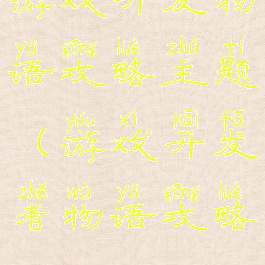 游戏开发物
yǔ gōng lüè zhǔ tí
语攻略主题
yóu xì kāi fā
（游戏开发
zhě wù yǔ gōng lüè
者物语攻略